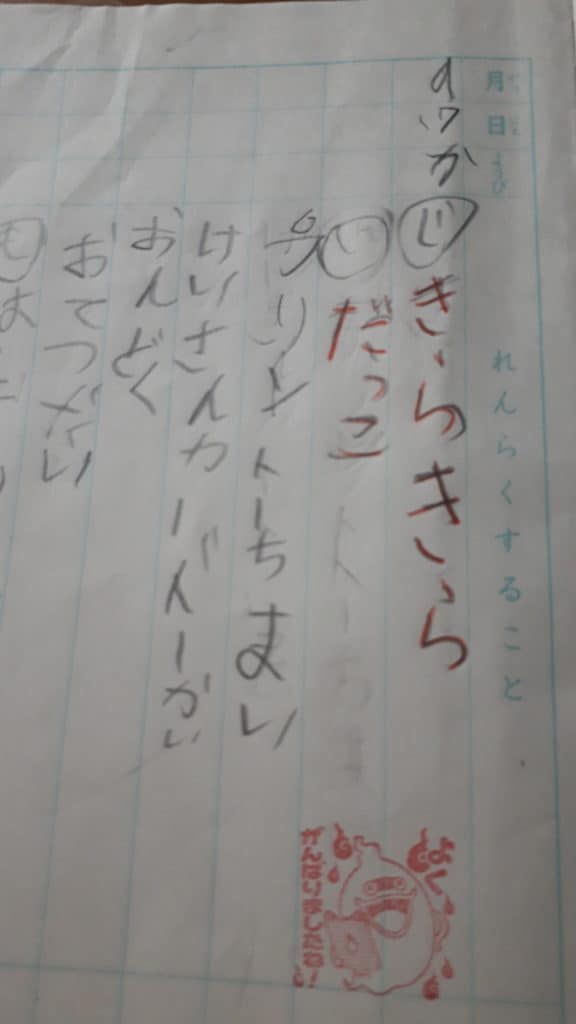 月日ようび れんらくすること
すいか
じ きらきら
し だっこ
プリント一ちまい
けいさんカード一かい
おんどく
おてつだい
も
よく
がんばりましたね!